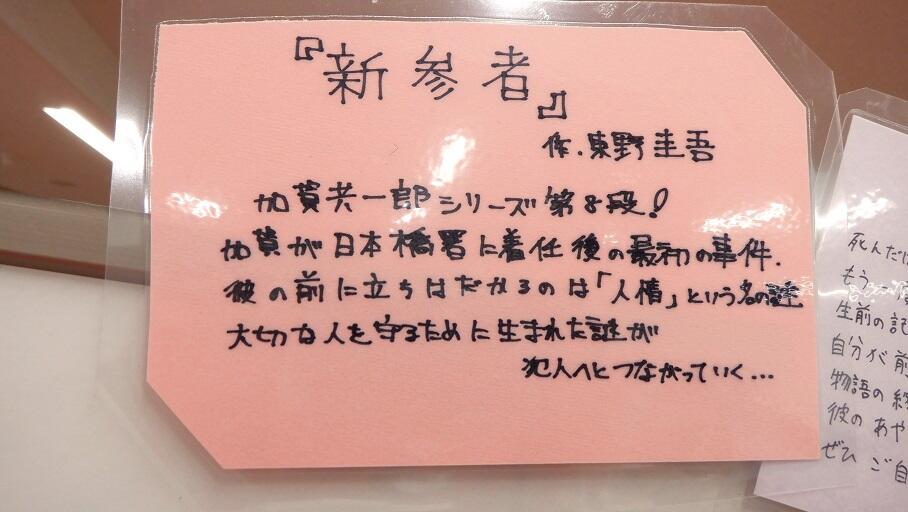 『新参者』
作.東野圭吾
加賀共一郎シリーズ第8段!
加賀が日本橋署に着任後の最初の事件.
彼の前に立ちはだかるのは「人情」という名の謎
大切な人を守るために生まれた謎が
犯人へとつながっていく...
死んだ
もう一
生前の記
自分が前
物語の
彼のあや
ぜひご自